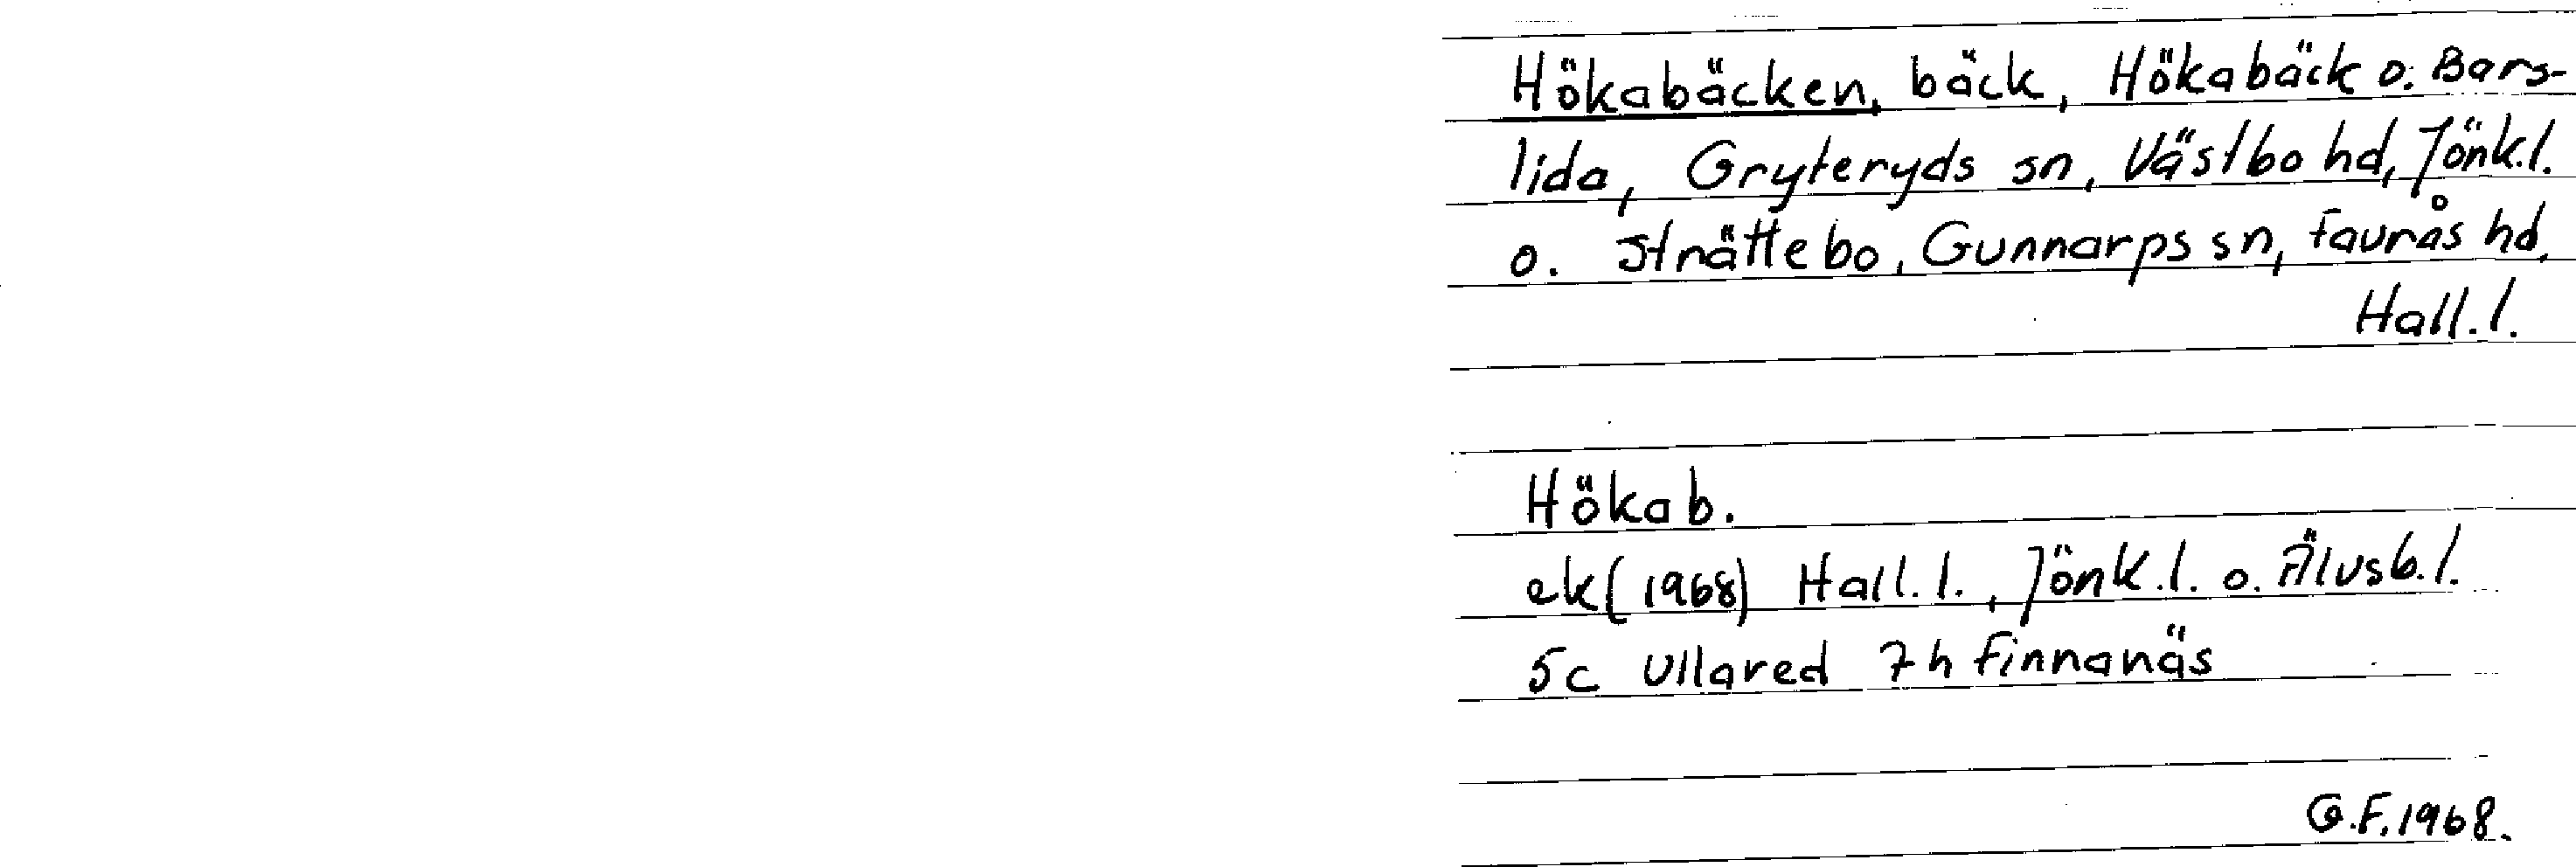 Hökabäcken, bäck, Hökabäck o. Bars-
lida, Gryteryds sn, Västbo hd, Jönk.l.
o. Strättebo, Gunnarps sn, Faurås hd,
Hall.l.
Hökab.
ek (1968) Hall.l., Jönk.l. o. Älvsb.l.
5c Ullared 7h Finnanäs
G.F. 1968.